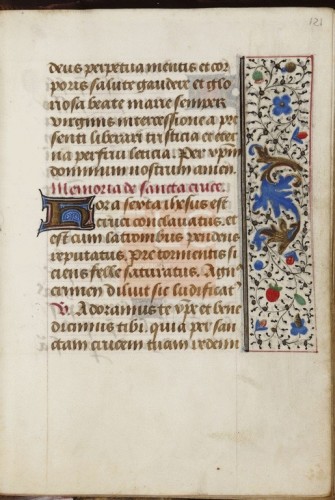 121
deus perpetua mentis et cor
poris salute gaudere et glo
riosa beate marie semper
virginis intercessione a pre
senti liberari tristicia et eter
na perfrui leticia. Per xp̄m
dominum nostrum amen.
Memoria de sancta cruce.
Hora sexta ihesus est
cruci conclavatus. et
est cum latronibus pendens
reputatus. Pre tormentis si
ciens felle saturatus. Agn9
crimen diluit sic ludificat9
V. Adoramus te xp̄e et bene
dicimus tibi. quia per sanc
tam crucem tuam redemi